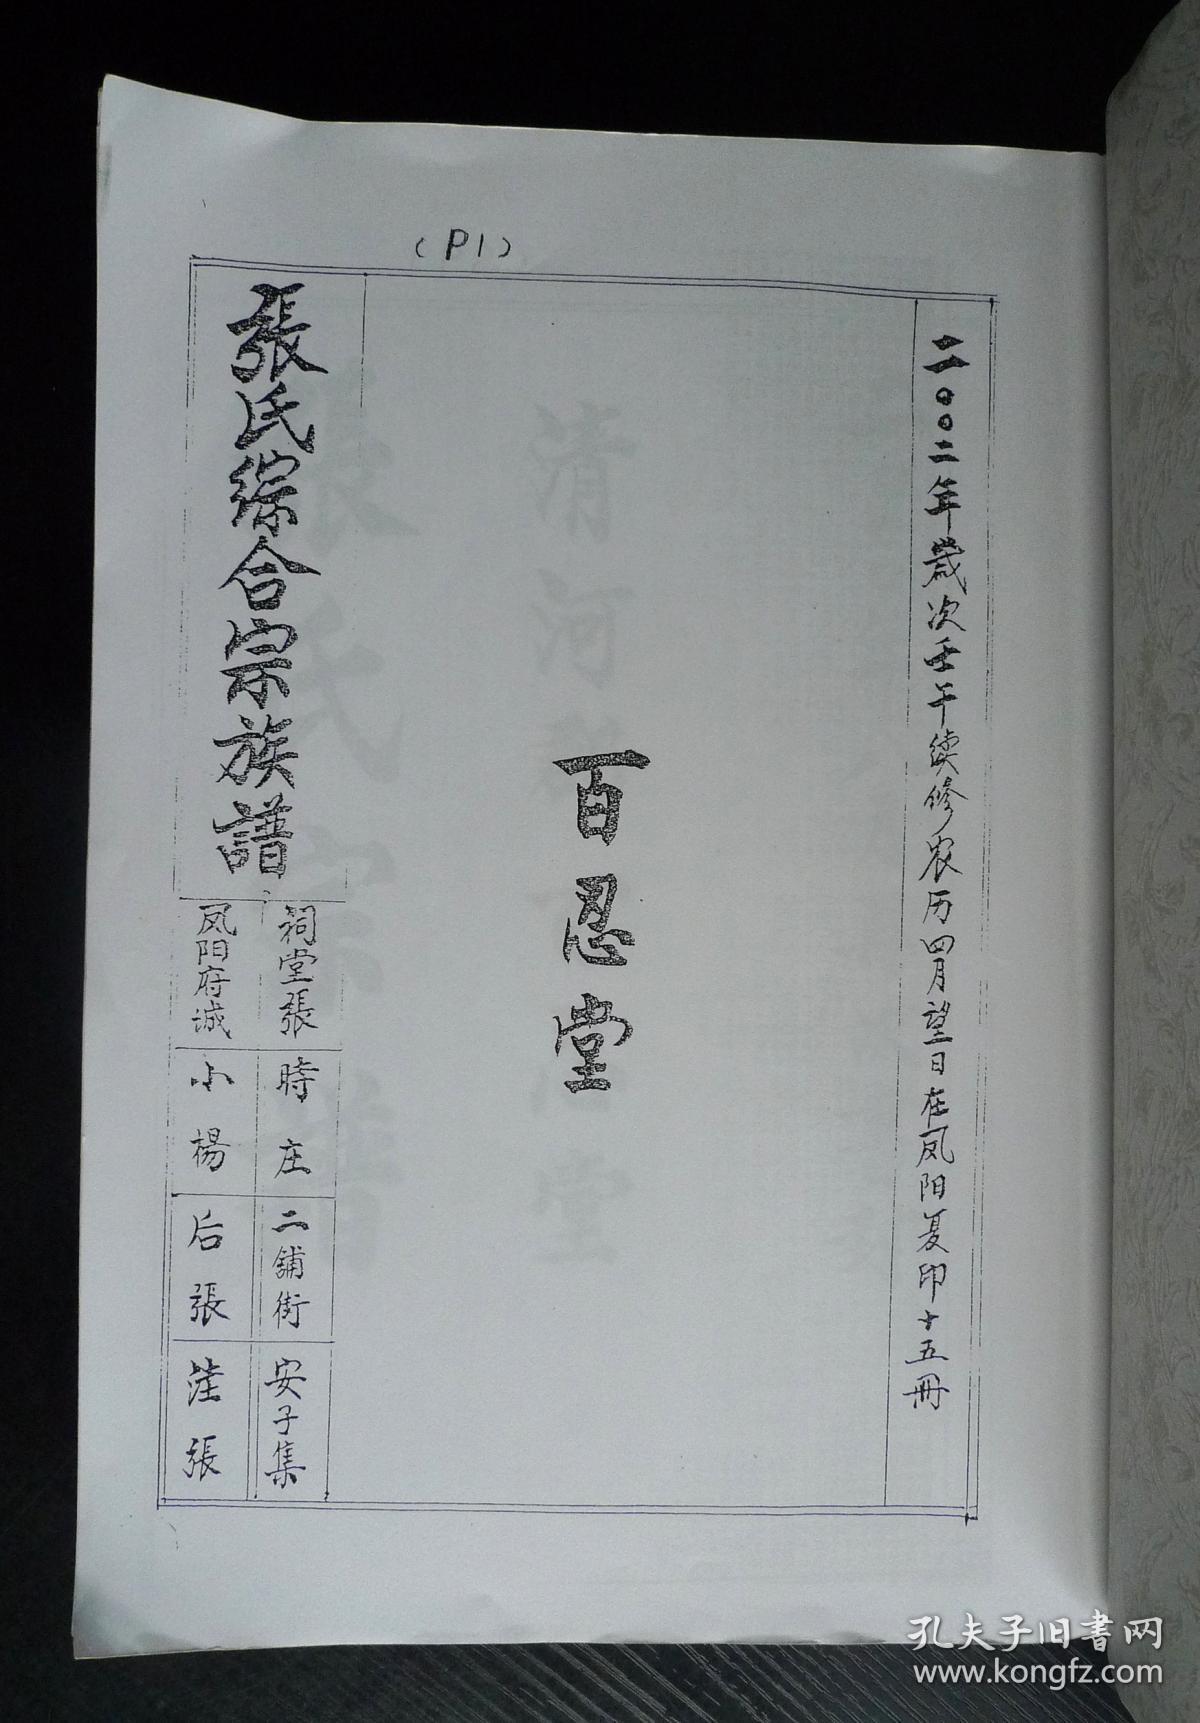 (P1)
二〇〇二年岁次壬午续修农历四月望日在凤阳复印十五冊
百忍堂
張氏綜合宗族譜
祠堂張
凤阳府诚
時庄
小楊
二舖街
后張
安子集
洼張
清河
張氏宗譜
孔夫子旧書网
www.kongfz.com